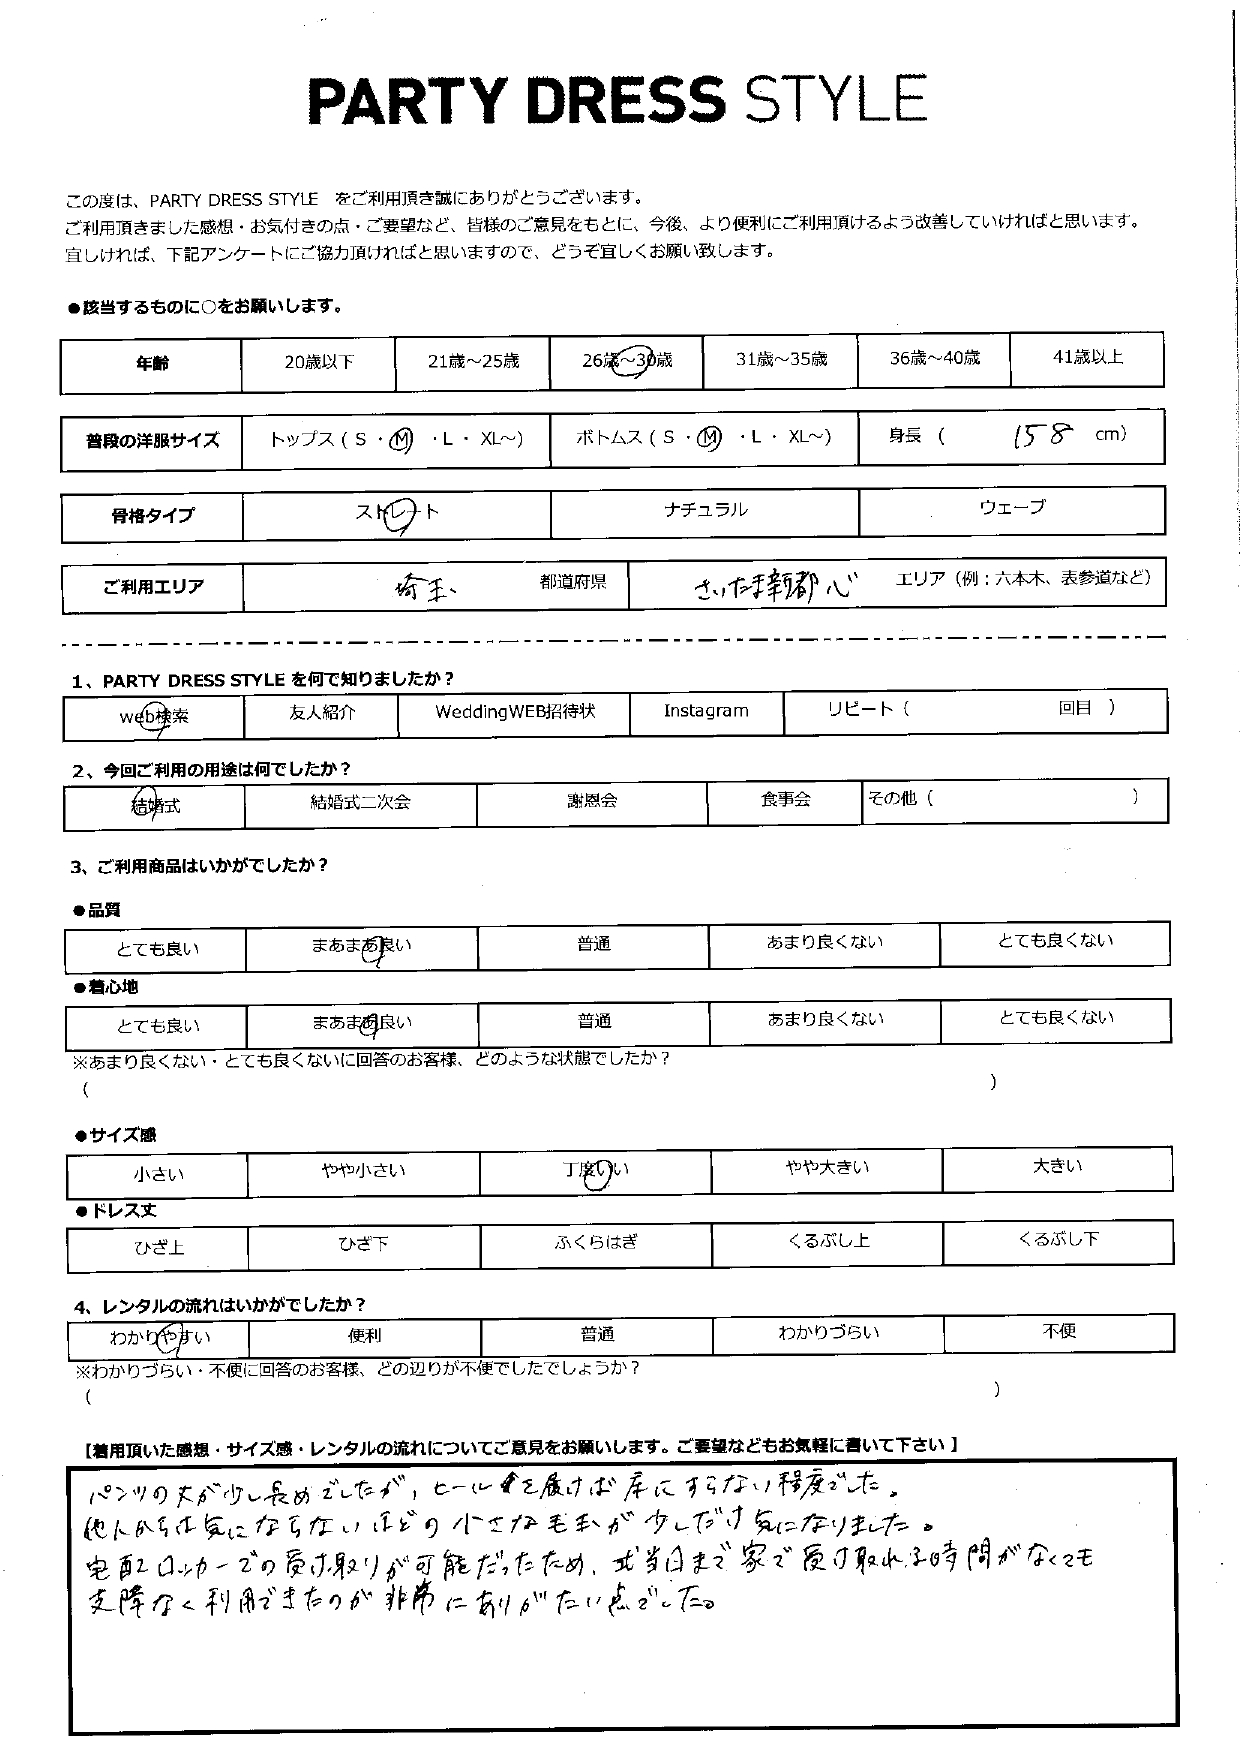 PARTY DRESS STYLE
この度は、PARTY DRESS STYLE をご利用頂き誠にありがとうございます。
ご利用頂きました感想・お気付きの点・ご要望など、皆様のご意見をもとに、今後、より便利にご利用頂けるよう改善していければと思います。
宜しければ、下記アンケートにご協力頂ければと思いますので、どうぞ宜しくお願い致します。
●該当するものに○をお願いします。
年齢 20歳以下 21歳～25歳 26歳～30歳 31歳～35歳 36歳～40歳 41歳以上
普段の洋服サイズ トップス（ S ・ M ・ L ・ XL～） ボトムス（ S ・ M ・ L ・ XL～） 身長（ 158 cm）
骨格タイプ ストレート ナチュラル ウェーブ
ご利用エリア 埼玉 都道府県 さいたま新都心 エリア（例：六本木、表参道など）
1、PARTY DRESS STYLE を何で知りましたか？
web検索 友人紹介 WeddingWEB招待状 Instagram リピート（ 回目 ）
2、今回ご利用の用途は何でしたか？
結婚式 結婚式二次会 謝恩会 食事会 その他（ ）
3、ご利用商品はいかがでしたか？
●品質
とても良い まあまあ良い 普通 あまり良くない とても良くない
●着心地
とても良い まあまあ良い 普通 あまり良くない とても良くない
※あまり良くない・とても良くないに回答のお客様、どのような状態でしたか？
（ ）
●サイズ感
小さい やや小さい 丁度いい やや大きい 大きい
●ドレス丈
ひざ上 ひざ下 ふくらはぎ くるぶし上 くるぶし下
4、レンタルの流れはいかがでしたか？
わかりやすい 便利 普通 わかりづらい 不便
※わかりづらい・不便に回答のお客様、どの辺りが不便でしたでしょうか？
（ ）
【着用頂いた感想・サイズ感・レンタルの流れについてご意見をお願いします。ご要望などもお気軽に書いて下さい 】
パンツの丈が少し長めでしたが、ヒールを履けば床にすらない程度でした。
他人からは気にならないほどの小さな毛玉が少しだけ気になりました。
宅配ロッカーでの受け取りが可能だったため、式当日まで家で受け取れる時間がなくても
支障なく利用できたのが非常にありがたい点でした。